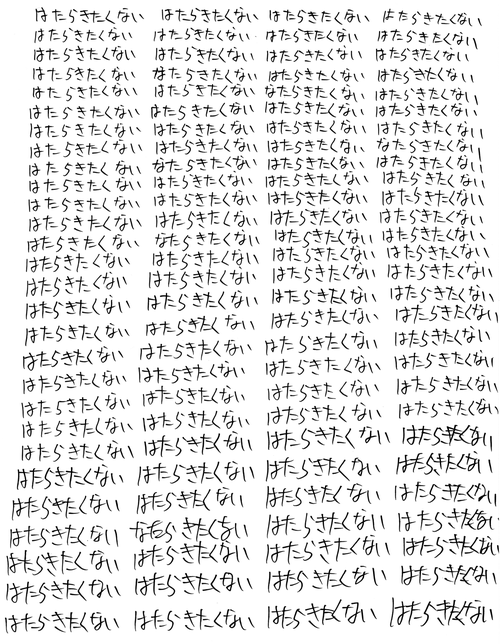 はたらきたくない はたらきたくない はたらきたくない はたらきたくない
はたらきたくない はたらきたくない はたらきたくない はたらきたくない
はたらきたくない はたらきたくない はたらきたくない はたらきたくない
はたらきたくない なたらきたくない はたらきたくない はたらきたくない
はたらきたくない はたらきたくない なたらきたくない はたらきたくない
はたらきたくない はたらきたくない はたらきたくない はたらきたくない
はたらきたくない はたらきたくない はたらきたくない はたらきたくない
はたらきたくない はたらきたくない はたらきたくない なたらきたくない
はたらきたくない なたらきたくない はたらきたくない はたらきたくない
はたらきたくない はたらきたくない はたらきたくない はたらきたくない
はたらきたくない はたらきたくない はたらきたくない はたらきたくない
はたらきたくない はたらきたくない はたらきたくない はたらきたくない
はたらきたくない なたらきたくない はたらきたくない はたらきたくない
はたらきたくない はたらきたくない はたらきたくない はたらきたくない
はたらきたくない はたらきたくない はたらきたくない はたらきたくない
はたらきたくない はたらきたくない はたらきたくない はたらきたくない
はたらきたくない はたらきたくない はたらきたくない はたらきたくない
はたらきたくない はたらきたくない はたらきたくない はたらきたくない
はたらきたくない はたらきたくない はたらきたくない はたらきたくない
はたらきたくない はたらきたくない はたらきたくない はたらきたくない
はたらきたくない はたらきたくない はたらきたくない はたらきたくない
はたらきたくない はたらきたくない はたらきたくない はたらきたくない
はたらきたくない はたらきたくない はたらきたくない はたらきたくない
はたらきたくない はたらきたくない はたらきたくない はたらきたくない
はたらきたくない きたくない はたらきたくない はたらきたくない
はたらきたくない はたらきたくない はたらきたくない はたらきたくない
はたらきたくない はたらきたくない はたらきたくない はたらきたくない
はたらきたくない はたらきたくない はたらきたくない はたらきたくない